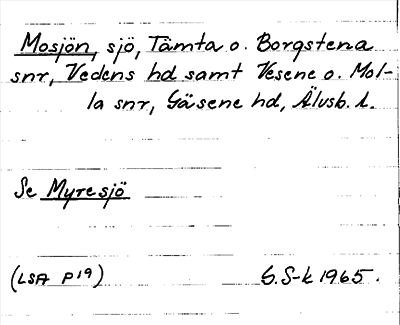 Mosjön, sjö, Tämta o. Borgstena
snr, Vedens hd samt Vesene o. Mol-
la snr, Gäsene hd, Älvsb. l.
Se Myresjö
(LSA P19) G.S-k 1965.